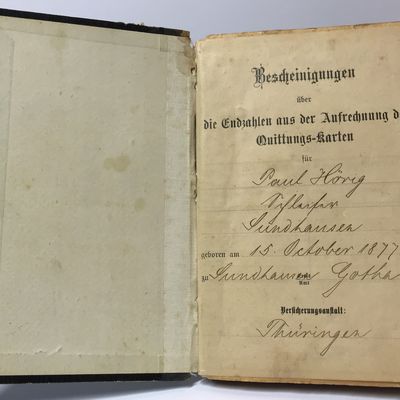 Bescheinigungen
über
die Endzahlen aus der Aufrechnung d
Quittungs-Karten
für
Paul Hörig
Schleifer
Sundhausen
geboren am 15. October 1877
zu Sundhausen Amt Gotha
Versicherungsanstalt:
Thüringen